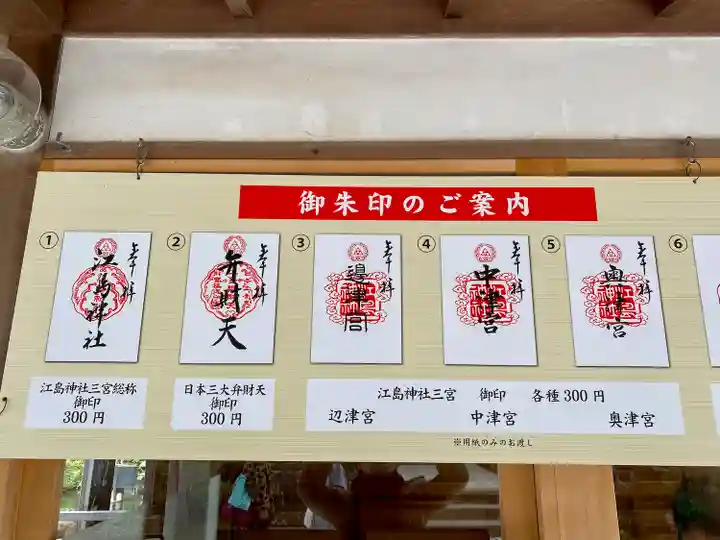 御朱印のご案内
① ② ③ ④ ⑤ ⑥
奉拝 江島神社
奉拝 弁財天
奉拝 邊津宮
奉拝 中津宮
奉拝 奥津宮
江島神社三宮総称
御印
300円
日本三大弁財天
御印
300円
江島神社三宮 御印 各種300円
辺津宮 中津宮 奥津宮
※用紙のみのお渡し